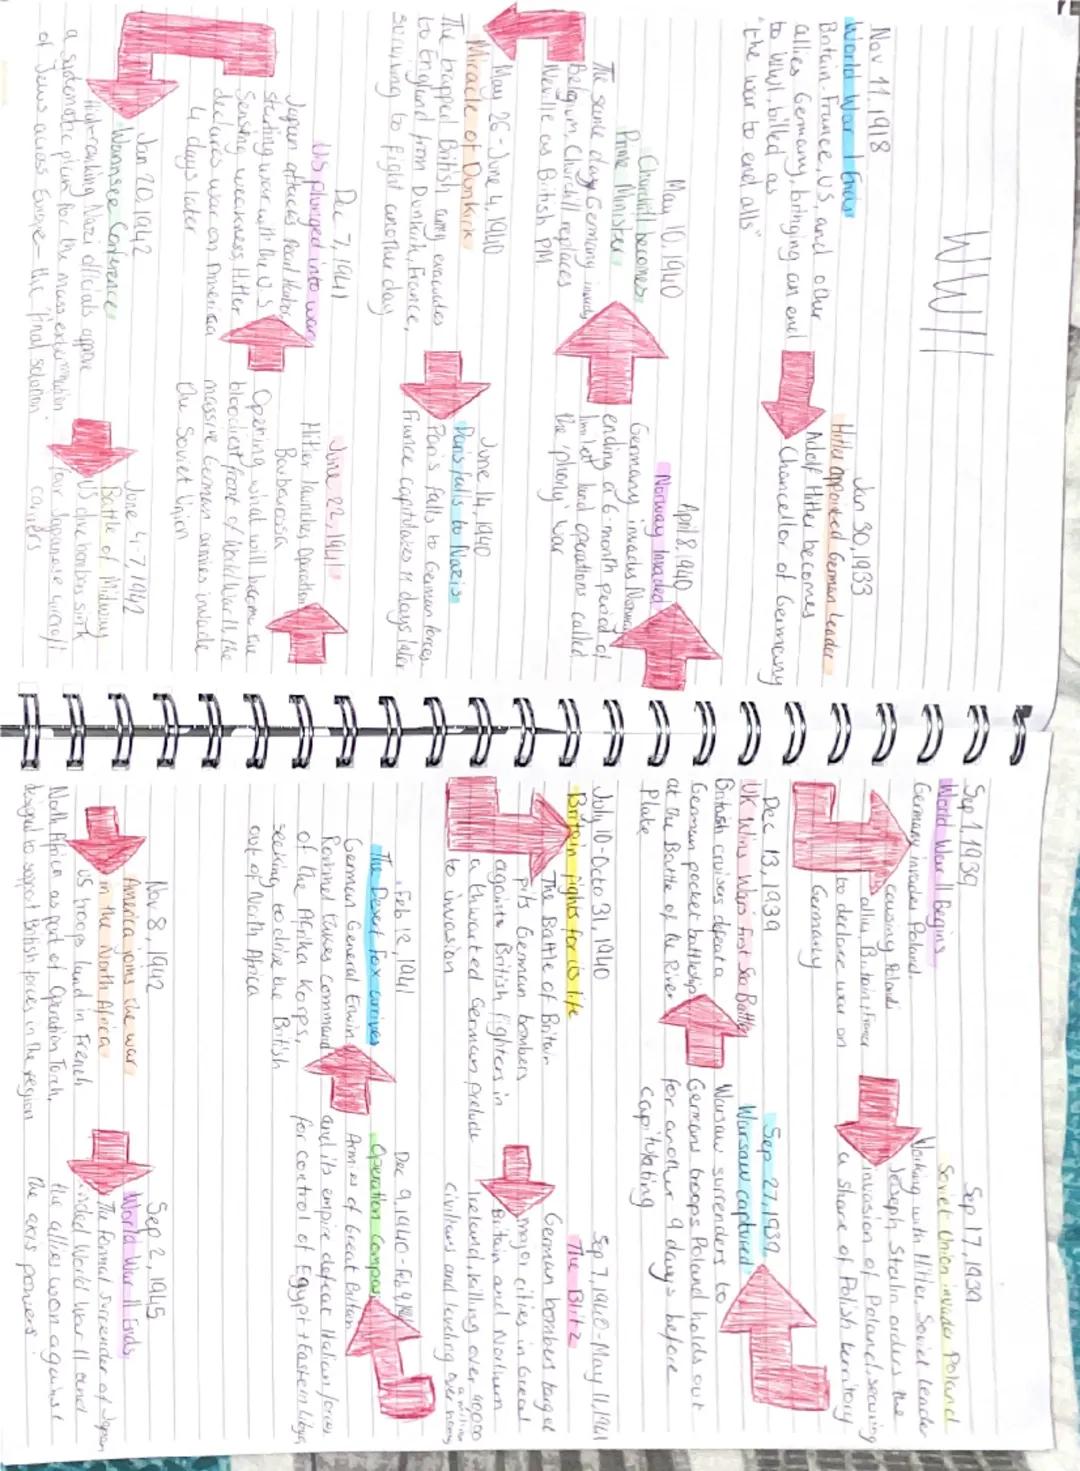 WWII
Nov 11, 1918
World War I Ends
Britain, France, US, and other
allies Germany, bringing an end
to WWI, billed as
"the war to end alls"
Jan 30, 1933
Hitler appointed German leader
Adolf Hitler becomes
Chancellor of Germany
Sep 1, 1939
World War II Begins
Germany invades Poland,
causing Poland's
allies Britain + France
to declare war on
Germany
Sep 17, 1939
Soviet Union invades Poland
Working with Hitler, Soviet leader
Joseph Stalin orders the
invasion of Poland, securing
a share of Polish territory
Sep 27, 1939
Warsaw captured
Warsaw surrenders to
Germans troops Poland holds out
for another 9 days before
capitulating
Dec 13, 1939
UK Wins Wars first Sea Battle
British cruisers defeat a
German pocket battleship
at the Battle of the River
Plate
April 8, 1940
Norway Invaded
Germany invades Norway
ending a 6-month period of
limited land operations called
the 'phony' war
May 10, 1940
Churchill becomes
Prime Minister
The same day Germany invades
Belgium, Churchill replaces
Neville as British PM
May 26-June 4, 1940
Miracle of Dunkirk
The trapped British army evacuates
to England from Dunkirk, France,
surviving to fight another day
June 14, 1940
Paris falls to Nazis
Paris falls to German forces
France capitulates 11 days later
July 10-Octo 31, 1940
Britain fights for is life
The Battle of Britain
pits German bombers
against British fighters in
a thwarted German prelude
to invasion
Sep 7, 1940-May 11, 1941
The Blitz
German bombers target
major cities in Great
Britain and Northern
Ireland, killing over 40000
civilians and leading over
Dec 9, 1940-Feb 9,
Operation Compass
Armies of Great Britain
and its empire defeat Italian forces
for control of Egypt + Eastern Libya
Feb 12, 1941
The Desert Fox arrives
German General Erwin
Rommel takes command
of the Afrika Korps,
seeking to drive the British
out of North Africa
June 22, 1941
Hitler launches Operation
Barbarossa
Opening what will become the
bloodiest front of World War II, the
massive German armies invade
the Soviet Union
Dec 7, 1941
US plunged into war
Japan attacks Pearl Harbor,
starting war with the U.S
Sensing weakness, Hitler
declares war on America
4 days later
Jan 20, 1942
Wannsee Conference
High-ranking Nazi officials approve
a systematic plan for the mass extermination
of Jews across Europe - the 'final solution'
June 4-7, 1942
Battle of Midway
US dive bombers sink
four Japanese aircraft
carriers
Nov 8, 1942
America joins the war
in the North Africa
US troops land in French
North Africa as part of Operation Torch,
designed to support British forces in the region
Sep 2, 1945
World War II Ends
The formal surrender of Japan
ended World War II and
the allies won against
the axis powers.